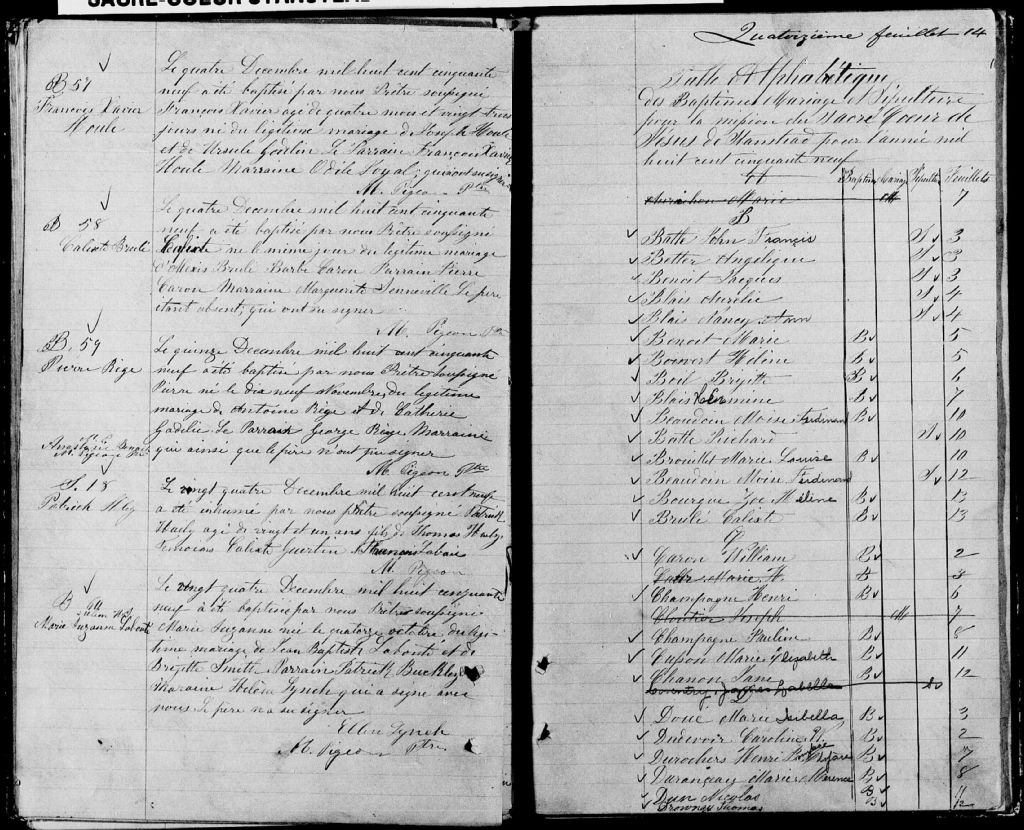 SACRÉ-COEUR STANSTEAD
B 57
François Xavier
Houle
Le quatre Decembre mil huit cent cinquante
neuf a été baptisé par nous Prêtre soussigné
François Xavier agé de quatre mois et vingt trois
jours né du légitime mariage de Joseph Houle
et de Ursule Goselin Le Parrain François Xavier
Houle Marraine Odile Loyal; qui ont su signer
M. Pigeon Ptre
B 58
Calixte Brulé
Le quatre Decembre mil huit cent cinquante
neuf, a été baptisé par nous Prêtre soussigné
Calixte né le même jour du legitime mariage
d'Alexis Brulé Barbe Caron Parrain Pierre
Caron Marraine Marguerite Senneville Le père
étant absent; qui ont su signer
M. Pigeon Ptre
B. 59
Pierre Rige
Le quinze Decembre mil huit cent cinquante
neuf a été baptisé par nous Prêtre soussigné
Pierre né le dix neuf Novembre, du legitime
mariage de Antoine Rige et de Catherie
Gadelie Le Parrain George Rige Marraine
Anastasie Benoit
M. Pigeon Ptre
qui ainsi que le père n'ont pu signer
M. Pigeon Ptre
S. 18
Patrick Hly
Le vingt quatre Decembre mil huit cent neuf
a été inhumé par nous prêtre soussigné Patrick
Haely agé de vingt et un ans fils de Thomas Haely
Temoins Calixte Guertin François Labarée
M. Pigeon
B
Maria Suzanna Labonté
Le vingt quatre Decembre mil huit cent cinquante
neuf a été baptisée par nous Prêtre soussigné
Marie Suzanne née le quatorze octobre du légi-
time mariage de Jean Baptiste Labonté et de
Brigitte Smith Parrain Patrick Buckley
Maraine Helena Lynch qui a signé avec
nous Le père n'a su signer
Ellen Lynch
M. Pigeon Ptre
Quatorzième feuillet 14
Table Alphabétique
des Baptêmes Mariage et Sépulture
pour la mission du Sacré Coeur de
Jésus de Stanstead pour l'année mil
huit cent cinquante neuf
A Baptême Mariage Sépulture Feuillets
Marie M 7
B
Batte John Francis S 3
Better Angélique S 3
Benoit Jacques S 3
Blais Aurélie S 4
Blais Nancy Ann S 4
Benoit Marie B 5
Boisvert Heléne B 5
Boil Brigitte B 6
Blais Hermine B 7
Beaudoin Moise Ferdinand B 10
Batte Richard S 10
Brouillet Marie Louise B 10
Beaudoin Moise Ferdinand S 12
Bourque Zoe Meline B 13
Brulé Calixte B 13
C
Caron William B 2
Marie H. B 3
Champagne Henri B 6
Cloutier Joseph M 7
Champagne Pauline B 8
Cusson Marie Elizabeth B 11
Chanon Jane B 12
Coventry Jaques Isabella
D
Doué Marie Isibella B 3
Duevoir Caroline H. B 2
Durochers Henri B 7
Durançay Marie Merence B 8
Dean Nicolas B 11
Browney Thomas B 12